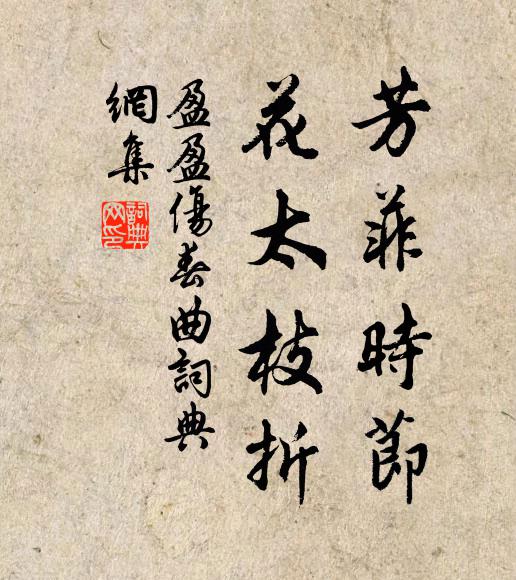 芳菲時節
花太枝折
盈盈傷春曲詞典
網集
詞典网印